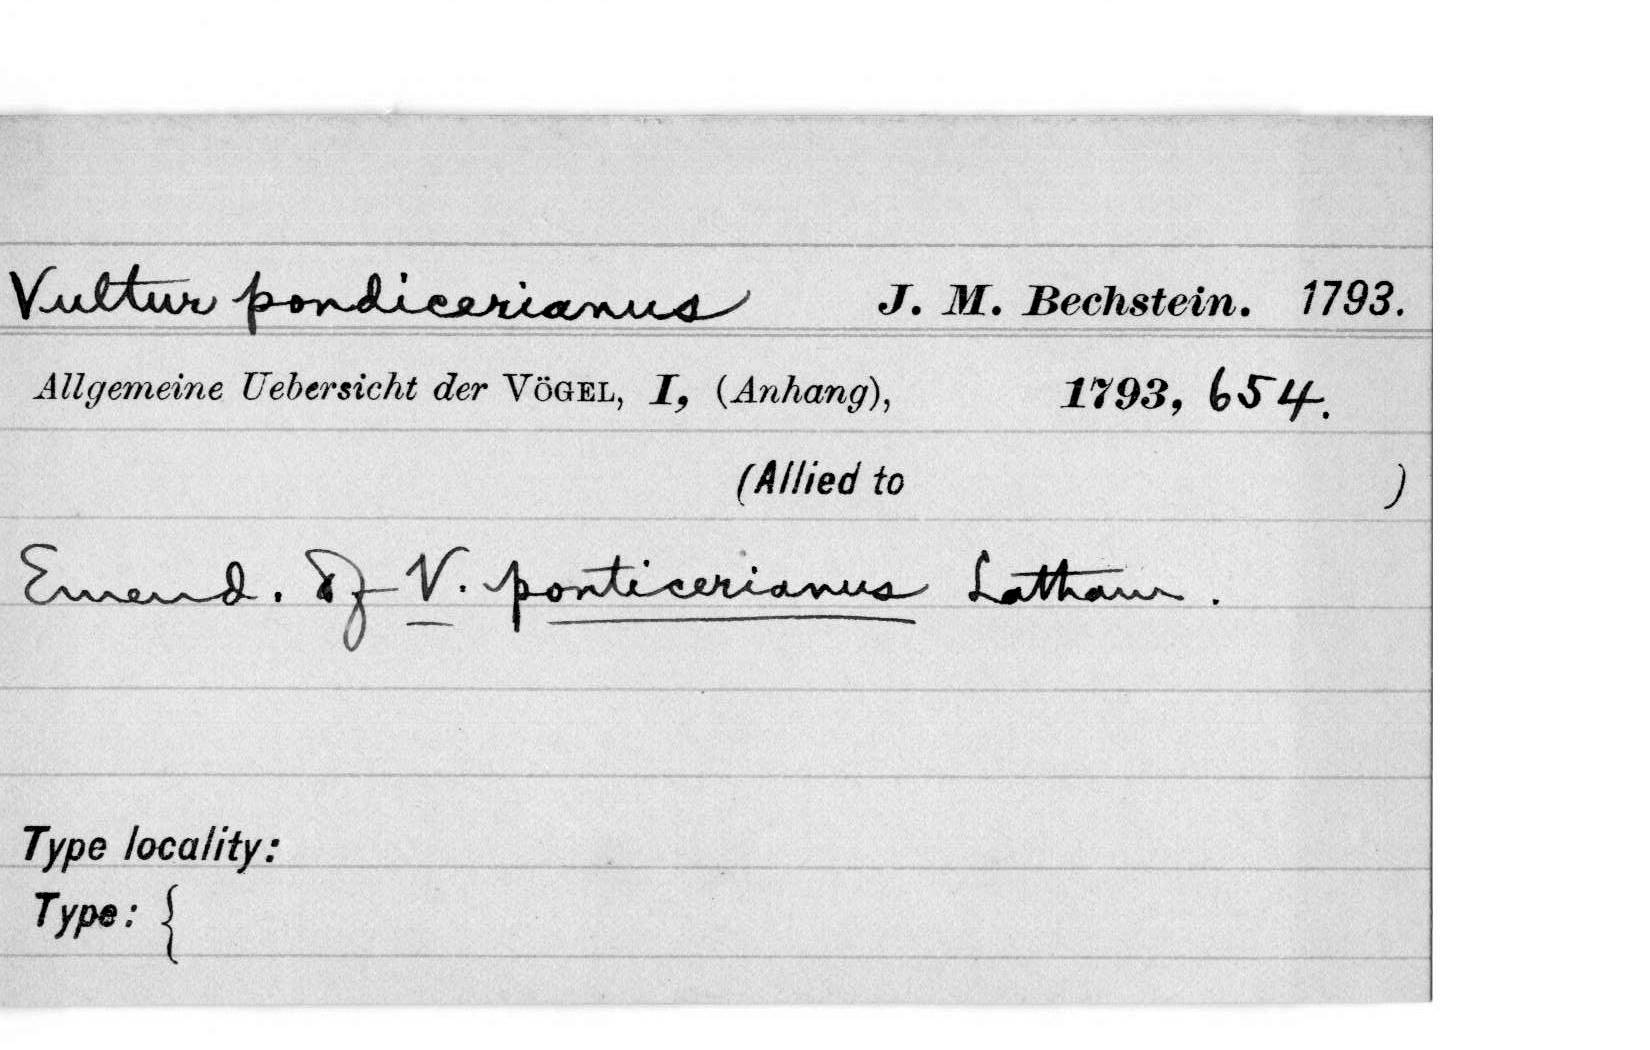 Vultur pondicerianus J. M. Bechstein. 1793.
Allgemeine Uebersicht der VÖGEL, I, (Anhang), 1793, 654.
(Allied to )
Emend. of V. ponticerianus Latham.
Type locality:
Type: {